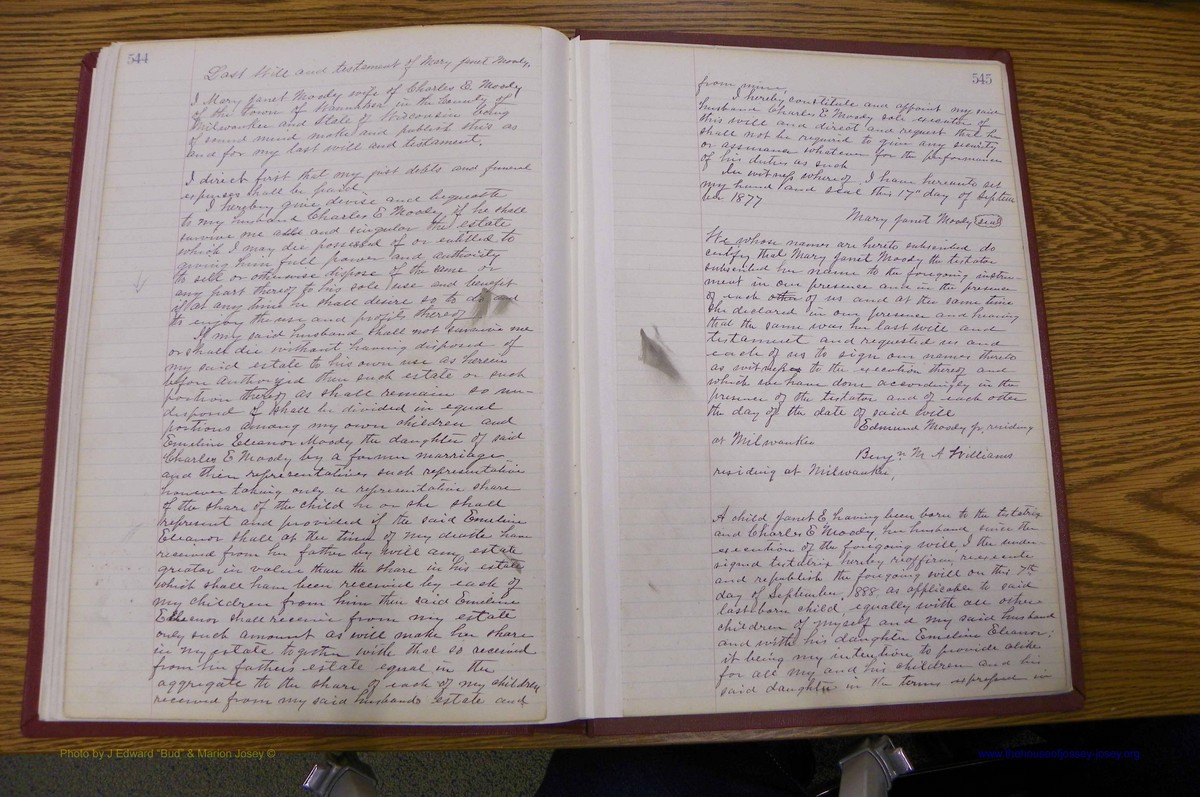 544
Last Will and testament of Mary Janet Moody.
I Mary Janet Moody wife of Charles E. Moody
of the Town of Wauwatosa in the County of
Milwaukee and State of Wisconsin being
of sound mind make and publish this as
and for my last will and testament.
I direct first that my just debts and funeral
expenses shall be paid.
I hereby give, devise and bequeathe
to my husband Charles E Moody, if he shall
survive me all and singular the estate
which I may die possessed of or entitled to
giving him full power and authority
to sell or otherwise dispose of the same or
any part thereof to his sole use and benefit
if at any time he shall desire so to do and
to enjoy the use and profits thereof
If my said husband shall not survive me
or shall die without having disposed of
my said estate to his own use as herein
before authorized then such estate or such
portion thereof as shall remain so un-
disposed of shall be divided in equal
portions among my own children and
Emeline Eleanor Moody the daughter of said
Charles E Moody by a former marriage
and their representatives such representative
however taking only a representative share
of the share of the child he or she shall
represent and provided if the said Emeline
Eleanor shall at the time of my death have
received from her father by will any estate
greater in value than the share in his estate
which shall have been received by each of
my children from him then said Emeline
Eleanor shall receive from my estate
only such amount as will make her share
in my estate together with that so received
from her fathers estate equal in the
aggregate to the share of each of my children
received from my said husbands estate and
545
from mine.
I hereby constitute and appoint my said
husband Charles E Moody sole executor of
this will and direct and request that he
shall not be required to give any security
or assurance whatever for the performance
of his duties as such
In witness whereof I have hereunto set
my hand and seal this 17th day of Septem
ber 1877
Mary Janet Moody (seal)
We whose names are hereto subscribed do
certify that Mary Janet Moody the testator
subscribed her name to the foregoing instru-
ment in our presence and in the presence
of each other of us and at the same time
she declared in our presence and hearing
that the same was her last will and
testament and requested us and
each of us to sign our names thereto
as witnesses to the execution thereof and
which we have done accordingly in the
presence of the testator and of each other
the day of the date of said will
Edmund Moody Jr, residing
at Milwaukee
Benjn M A Williams
residing at Milwaukee,
A child Janet E, having been born to the testatrix
and Charles E Moody, her husband since the
execution of the foregoing will I the under-
signed testatrix hereby reaffirm, reexecute
and republish the foregoing will on this 7th
day of September, 1888, as applicable to said
last born child equally with all other
children of myself and my said husband
and with his daughter Emeline Eleanor;
it being my intention to provide alike
for all my and his children and his
said daughter in the terms as in
Photo by J Edward "Bud" & Marion Josey ©
www.thehouseofjossey-josey.org